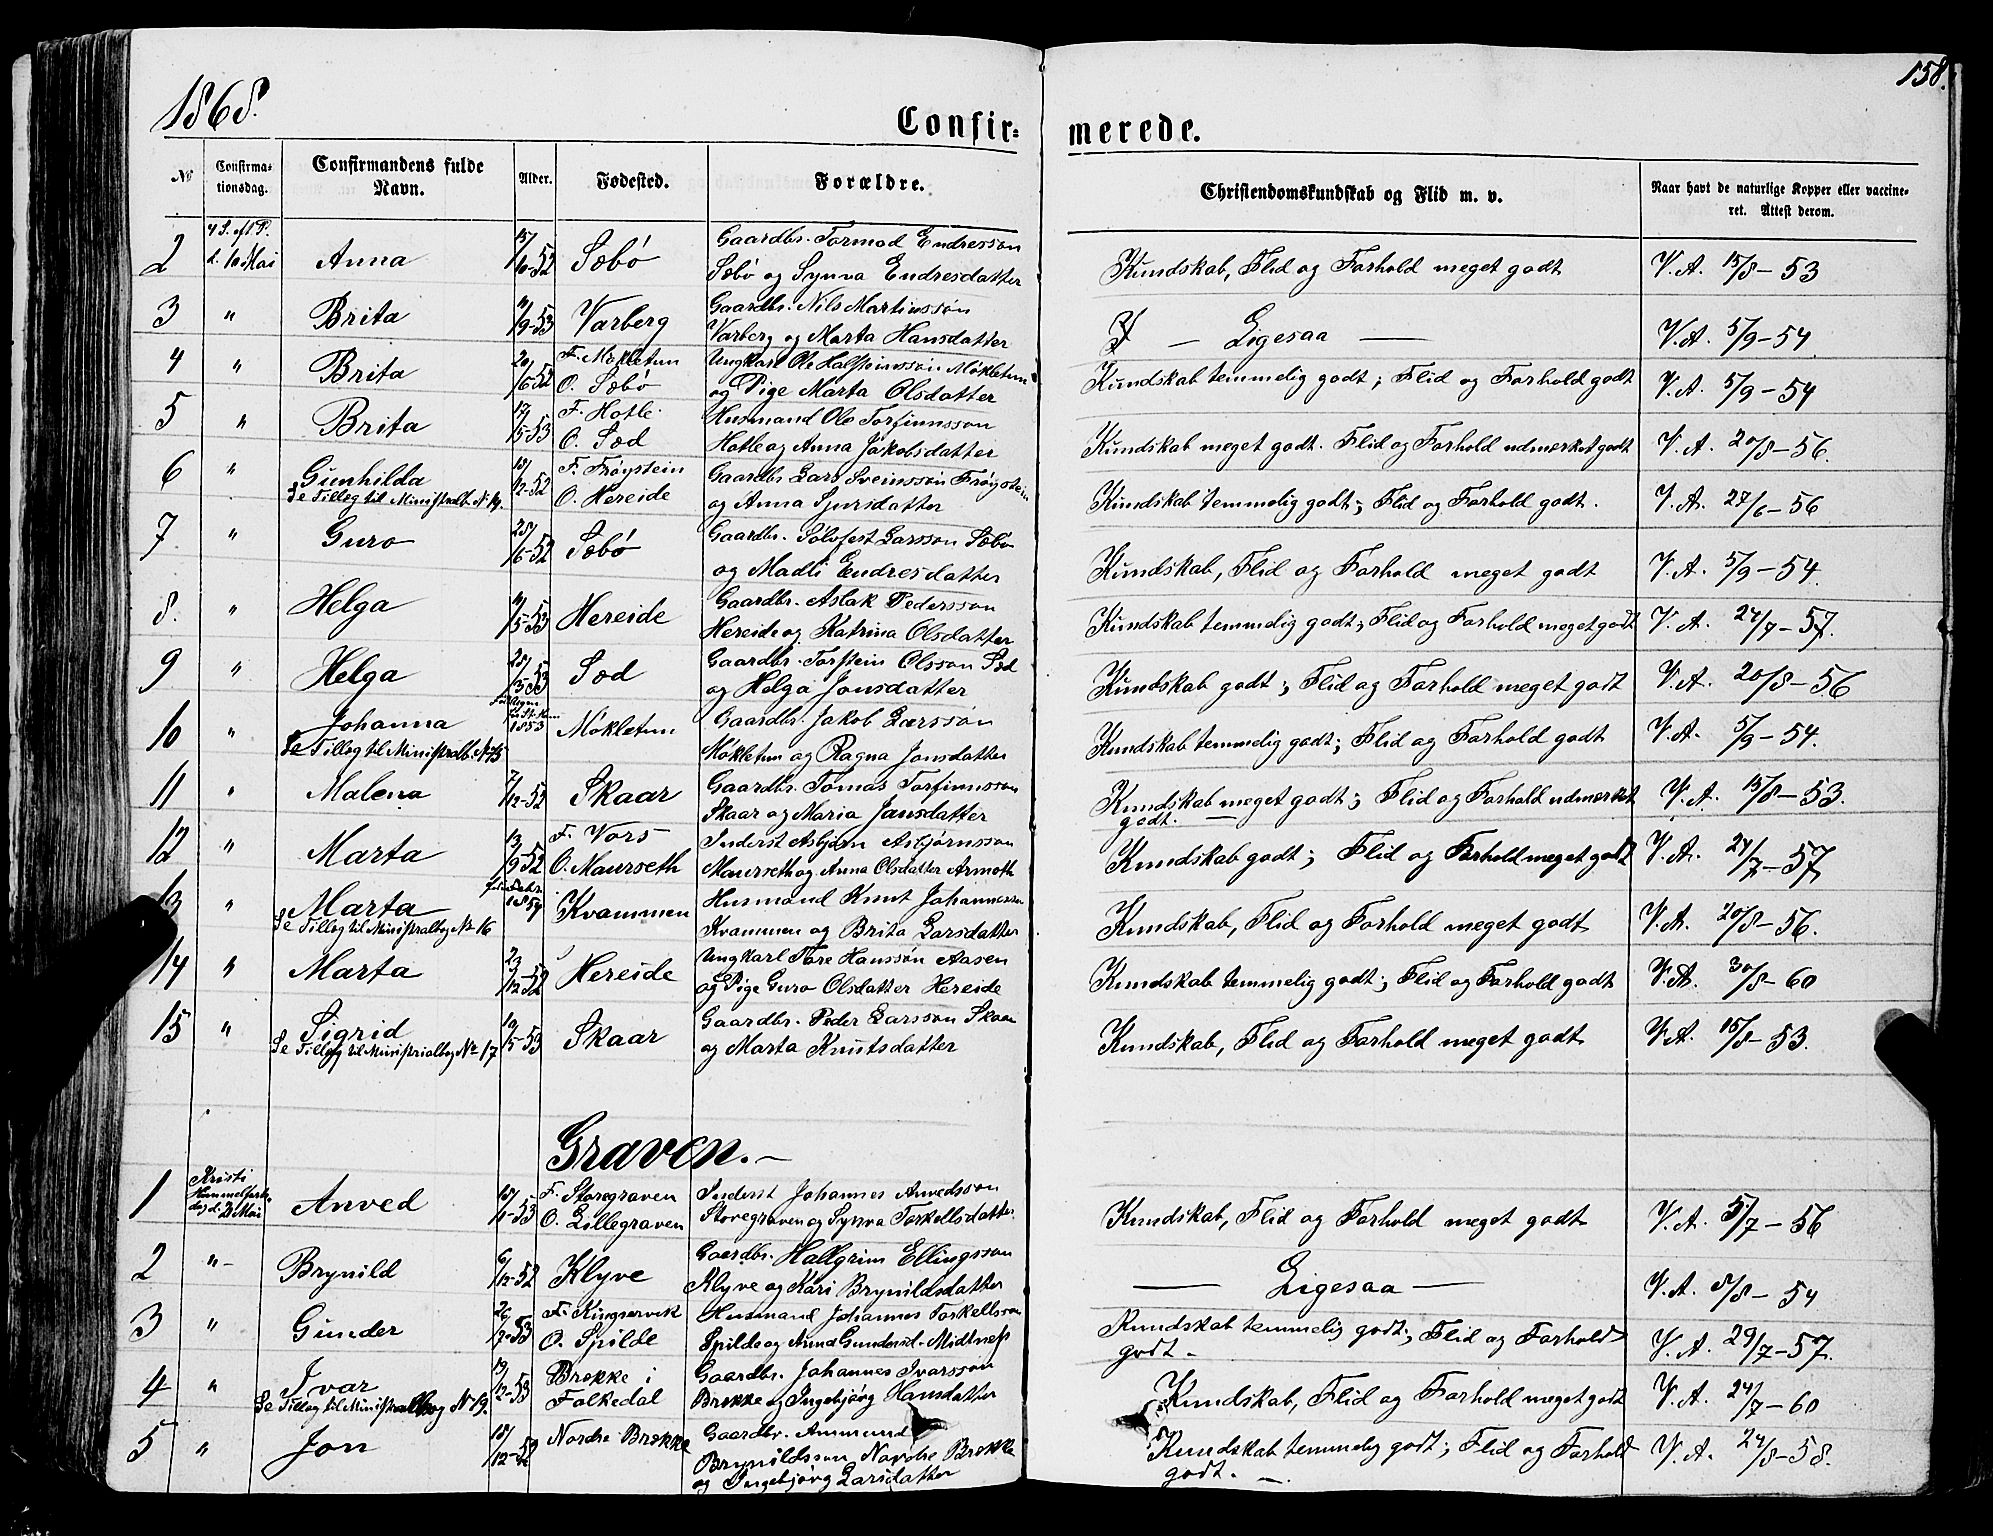 1868.
158.
Confir=merede.
No
Confirma-tionsdag.
Confirmandens fulde Navn.
Alder.
Fødested.
Forældre.
Christendomskundskab og Flid m. v.
Naar havt de naturlige Kopper eller vaccine-ret. Attest derom.
2 4 S. eft P. d. 10 Mai Anna 15/10-52 Sæbø Gaardbr. Tormod Endresson Kundskab, Flid og Forhold meget godt V. A. 15/8-53
Sæbø og Synva Endresdatter
3 " Brita 11/9-53 Varberg Gaardbr. Nils Martinsson — Ligesaa — V. A. 5/9-54
Varberg og Marta Hansdatter
4 " Brita 20/6-52 F. Mokletun Ungkarl Ole Halsteinsson Mokletun Kundskab temmelig godt; Flid og Forhold godt V. A. 5/9-54
O. Sæbø og Pige Marta Olsdatter
5 " Brita 17/5-53 F. Hotle Husmand Ole Torfinnsson Kundskab meget godt. Flid og Forhold udmerket godt V. A. 20/8-56.
O. Sæd Hotle og Anna Jakobsdatter
6 " Gunhilda 18/12-52 F. Frøystein Gaardbr Lars Sveinsson Frøystein Kundskab temmelig godt; Flid og Forhold godt. V. A. 27/6-56
Se Tillæg til Ministralb. N 14. O. Hereide og Anna Sjursdatter
7 " Guro 25/6-52 Sæbø Gaardbr. Solvfest Larsson Sæbø Kundskab, Flid og Forhold meget godt V. A. 5/9-54
og Madli Endresdatter
8. " Helga 11/5-53 Hereide Gaardbr. Aslak Pedersson Kundskab temmelig godt; Flid og Forhold meget godt V. A. 24/7-57.
Hereide og Katrina Olsdatter
9 " Helga 25/3-53 Sæd Gaardbr. Torstein Olsson Sæd Kundskab godt; Flid og Forhold meget godt V. A. 20/8-56
og Helga Jonsdatter
10 " Johanna 1853 Mokletun Gaardbr. Jakob Larsson Kundskab temmelig godt; Flid og Forhold godt V. A. 5/9-54.
Se Tillæg til Ministralb. N 15 Mokletun og Ragna Jonsdatter
11 " Malena 7/12-52 Skaar Gaardbr. Tomas Torfinnsson Kundskab meget godt; Flid og Forhold udmerket V. A. 15/8-53.
Skaar og Maria Jansdatter godt. —
12 " Marta 13/9-52 F. Vors Inderst Asbjørn Asbjørnsson Kundskab godt; Flid og Forhold meget godt V. A. 24/7-57
O. Maurseth Maurseth og Anna Olsdatter Armoth
13 " Marta Kvammen Husmand Knut Johannesson Kundskab, Flid og Forhold meget godt V. A. 20/8-56.
Se Tillæg til Ministralbog No 16 Kvammen og Brita Larsdatter
14 " Marta 23/12-52 Hereide Ungkarl Tore Hansson Aasen Kundskab temmelig godt; Flid og Forhold godt V. A. 30/8-60
og Pige Guro Olsdatter Hereide
15 " Sigrid 19/5-53 Skaar Gaardbr. Peder Larsson Skaar Kundskab, Flid og Forhold meget godt V. A. 15/8-53.
Se Tillæg til Ministrialbog No 17 og Marta Knutsdatter
Graven. —
1 Kristi Himmelfarts dag d. 21 Mai Anved 18/1-53 F. Storegraven Inderst Johannes Anvedsson Kundskab, Flid og Forhold meget godt V. A. 5/7-56
O. Lillegraven Storegraven og Synva Torkellsdatter
2 " Brynild 6/12-52 Klyve Gaardbr. Hallgrim Ellingsson — Ligesaa — V. A. 8/8-54
Klyve og Kari Brynildsdatter
3 " Gunder 26/2-53 F. Kingservik Husmand Johannes Torkellsson Kundskab temmelig godt; Flid og Forhold V. A. 29/7-57.
O. Spilde Spilde og Anna Gundersd. Midtnes godt —
4 " Ivar 19/12-53 Brekke i Gaardbr. Johannes Ivarsson Kundskab, Flid og Forhold meget godt V. A. 24/7-60
Se Tillæg til Ministralbog N 19. Folkedal Brekke og Ingebjørg Hansdatter
5 " Jon 18/12-52 Nordre Brekke Gaardbr. Ammund Kundskab temmelig godt; Flid og Forhold V. A. 24/8-58.
Brynildsson Nordre Brekke godt. —
og Ingebjørg Larsdatter